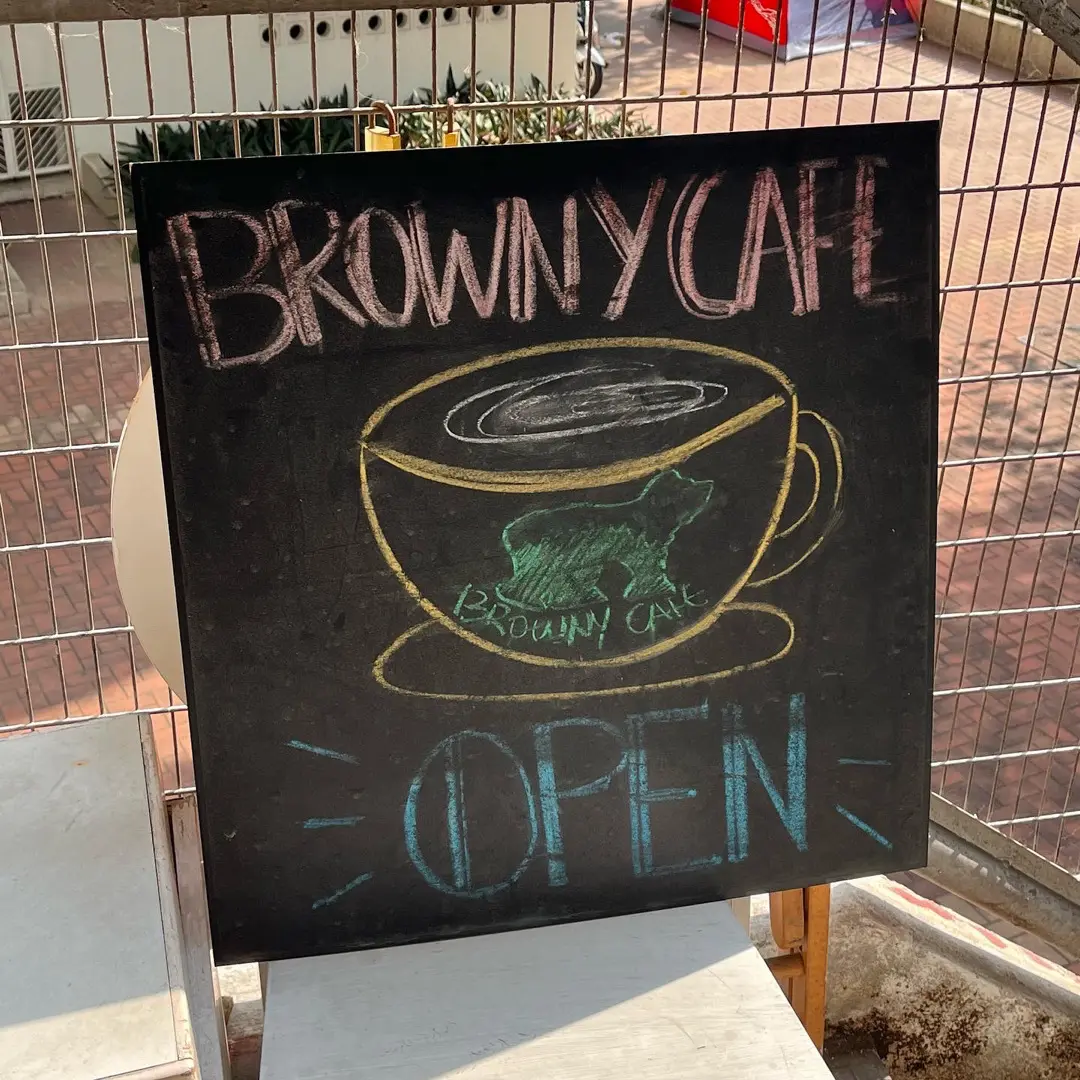 BROWNY CAFE
BROWNY CAFE
OPEN